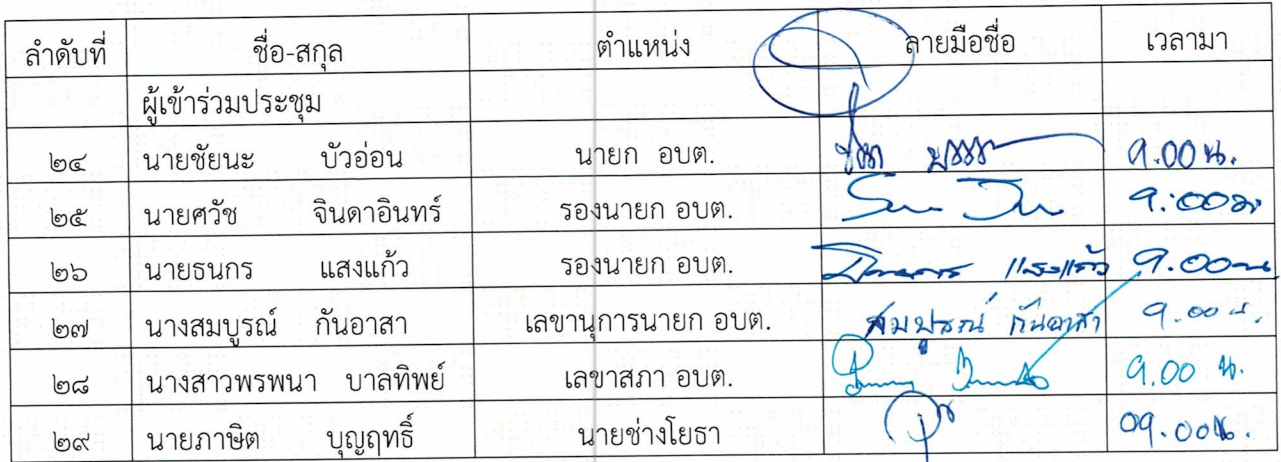 ลำดับที่ ชื่อ-สกุล ตำแหน่ง ลายมือชื่อ เวลามา
ผู้เข้าร่วมประชุม
๒๔ นายชัยนะ บัวอ่อน นายก อบต. 9.00 น.
๒๕ นายศวัช จินดาอินทร์ รองนายก อบต. 9:00 น
๒๖ นายธนกร แสงแก้ว รองนายก อบต. แสงแก้ว 9.00 น
๒๗ นางสมบูรณ์ กันอาสา เลขานุการนายก อบต. สมบูรณ์ กันอาสา 9.00 น.
๒๘ นางสาวพรพนา บาลทิพย์ เลขาสภา อบต. 9.00 น.
๒๙ นายภาษิต บุญฤทธิ์ นายช่างโยธา 09.00น.